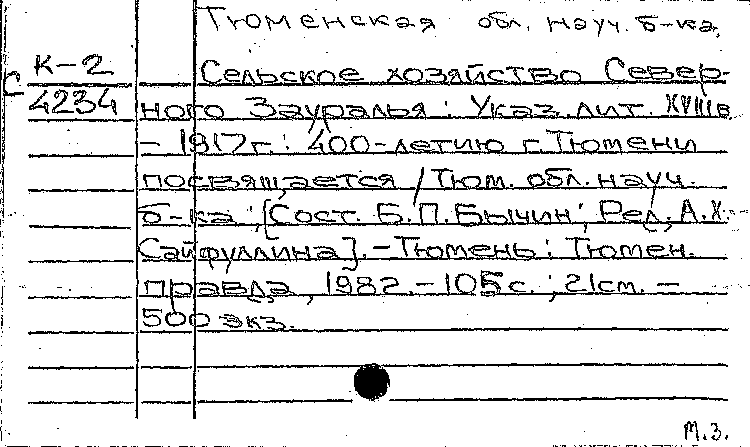 Тюменская обл. науч. б-ка.
С К-2
4234
Сельское хозяйство Север-
ного Зауралья : Указ. лит. XVIIIв
- 1917г. : 400-летию г. Тюмени
посвящается / Тюм. обл. науч.
б-ка ; [Сост. Б.П.Бычин ; Ред. А.Х.
Сайфуллина]. - Тюмень : Тюмен.
правда, 1982. - 105с. ; 21см. -
500 экз.
М.З.